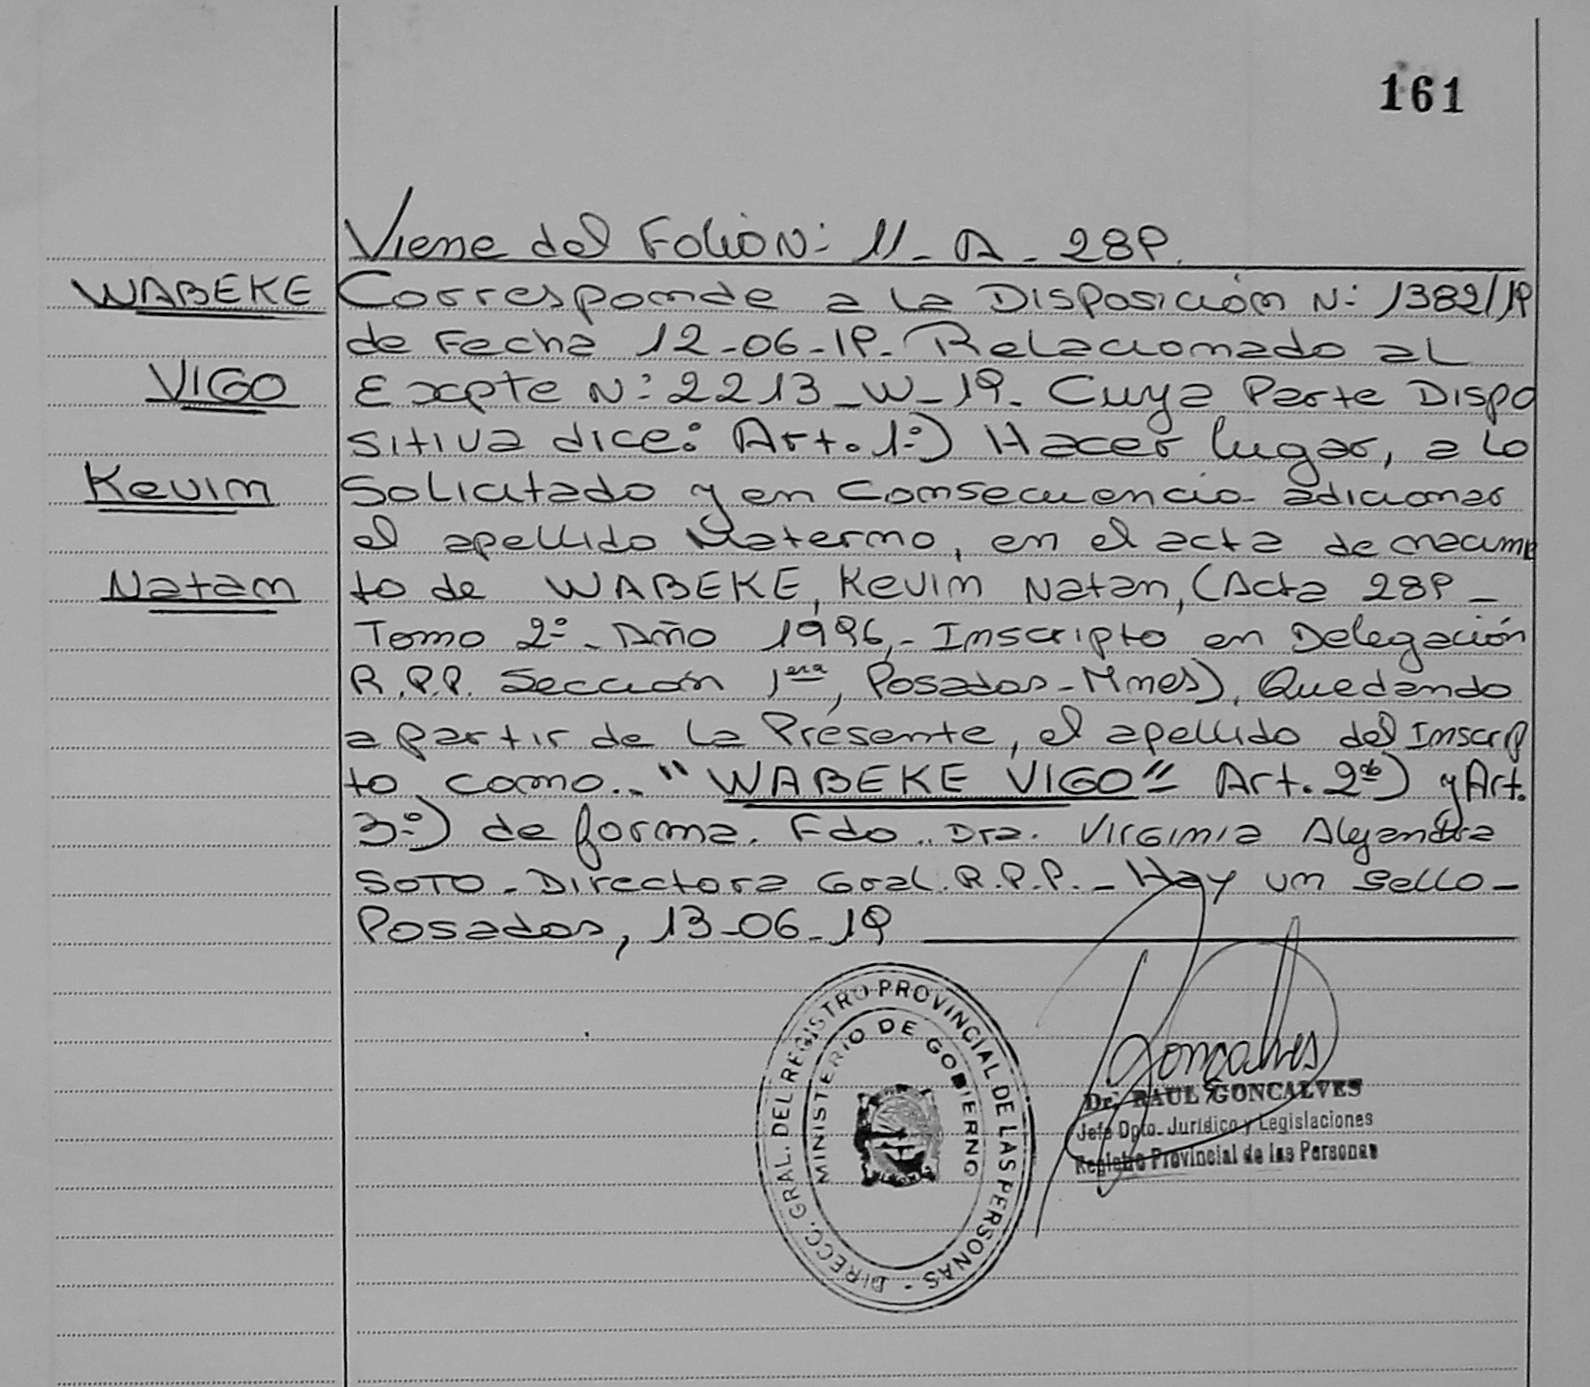 161
Viene del Folio N: 11 - A - 289.
WABEKE
VIGO
Kevin
Natan
Corresponde a la Disposición N: 1382/19
de Fecha 12-06-19. Relacionado al
Expte N: 2213-W-19. Cuya Parte Dispo
sitiva dice: Art. 1º) Hacer lugar, a lo
Solicitado y en Consecuencia adicionar
el apellido Materno, en el acta de nacimien
to de WABEKE, Kevin Natan, (Acta 289 -
Tomo 2º - Año 1996, - Inscripto en Delegación
R.P.P. Sección 1era, Posadas - Mnes), Quedando
a partir de la Presente, el apellido del Inscrip
to como.. "WABEKE VIGO" Art. 2º) y Art.
3º) de forma. Fdo.. Dra. Virginia Alejandra
SOTO - Directora Gral. R.P.P. - Hay un Sello -
Posadas, 13-06-19
DIRECC. GRAL. DEL REGISTRO PROVINCIAL DE LAS PERSONAS -
MINISTERIO DE GOBIERNO
Goncalves
Dr. RAUL GONCALVES
Jefe Dpto. Jurídico y Legislaciones
Registro Provincial de las Personas